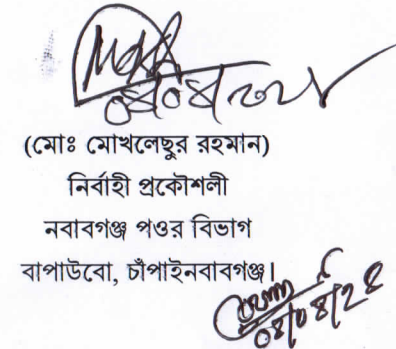 (মোঃ মোখলেছুর রহমান)
নির্বাহী প্রকৌশলী
নবাবগঞ্জ পওর বিভাগ
বাপাউবো, চাঁপাইনবাবগঞ্জ।
০৪/০৪/২৪